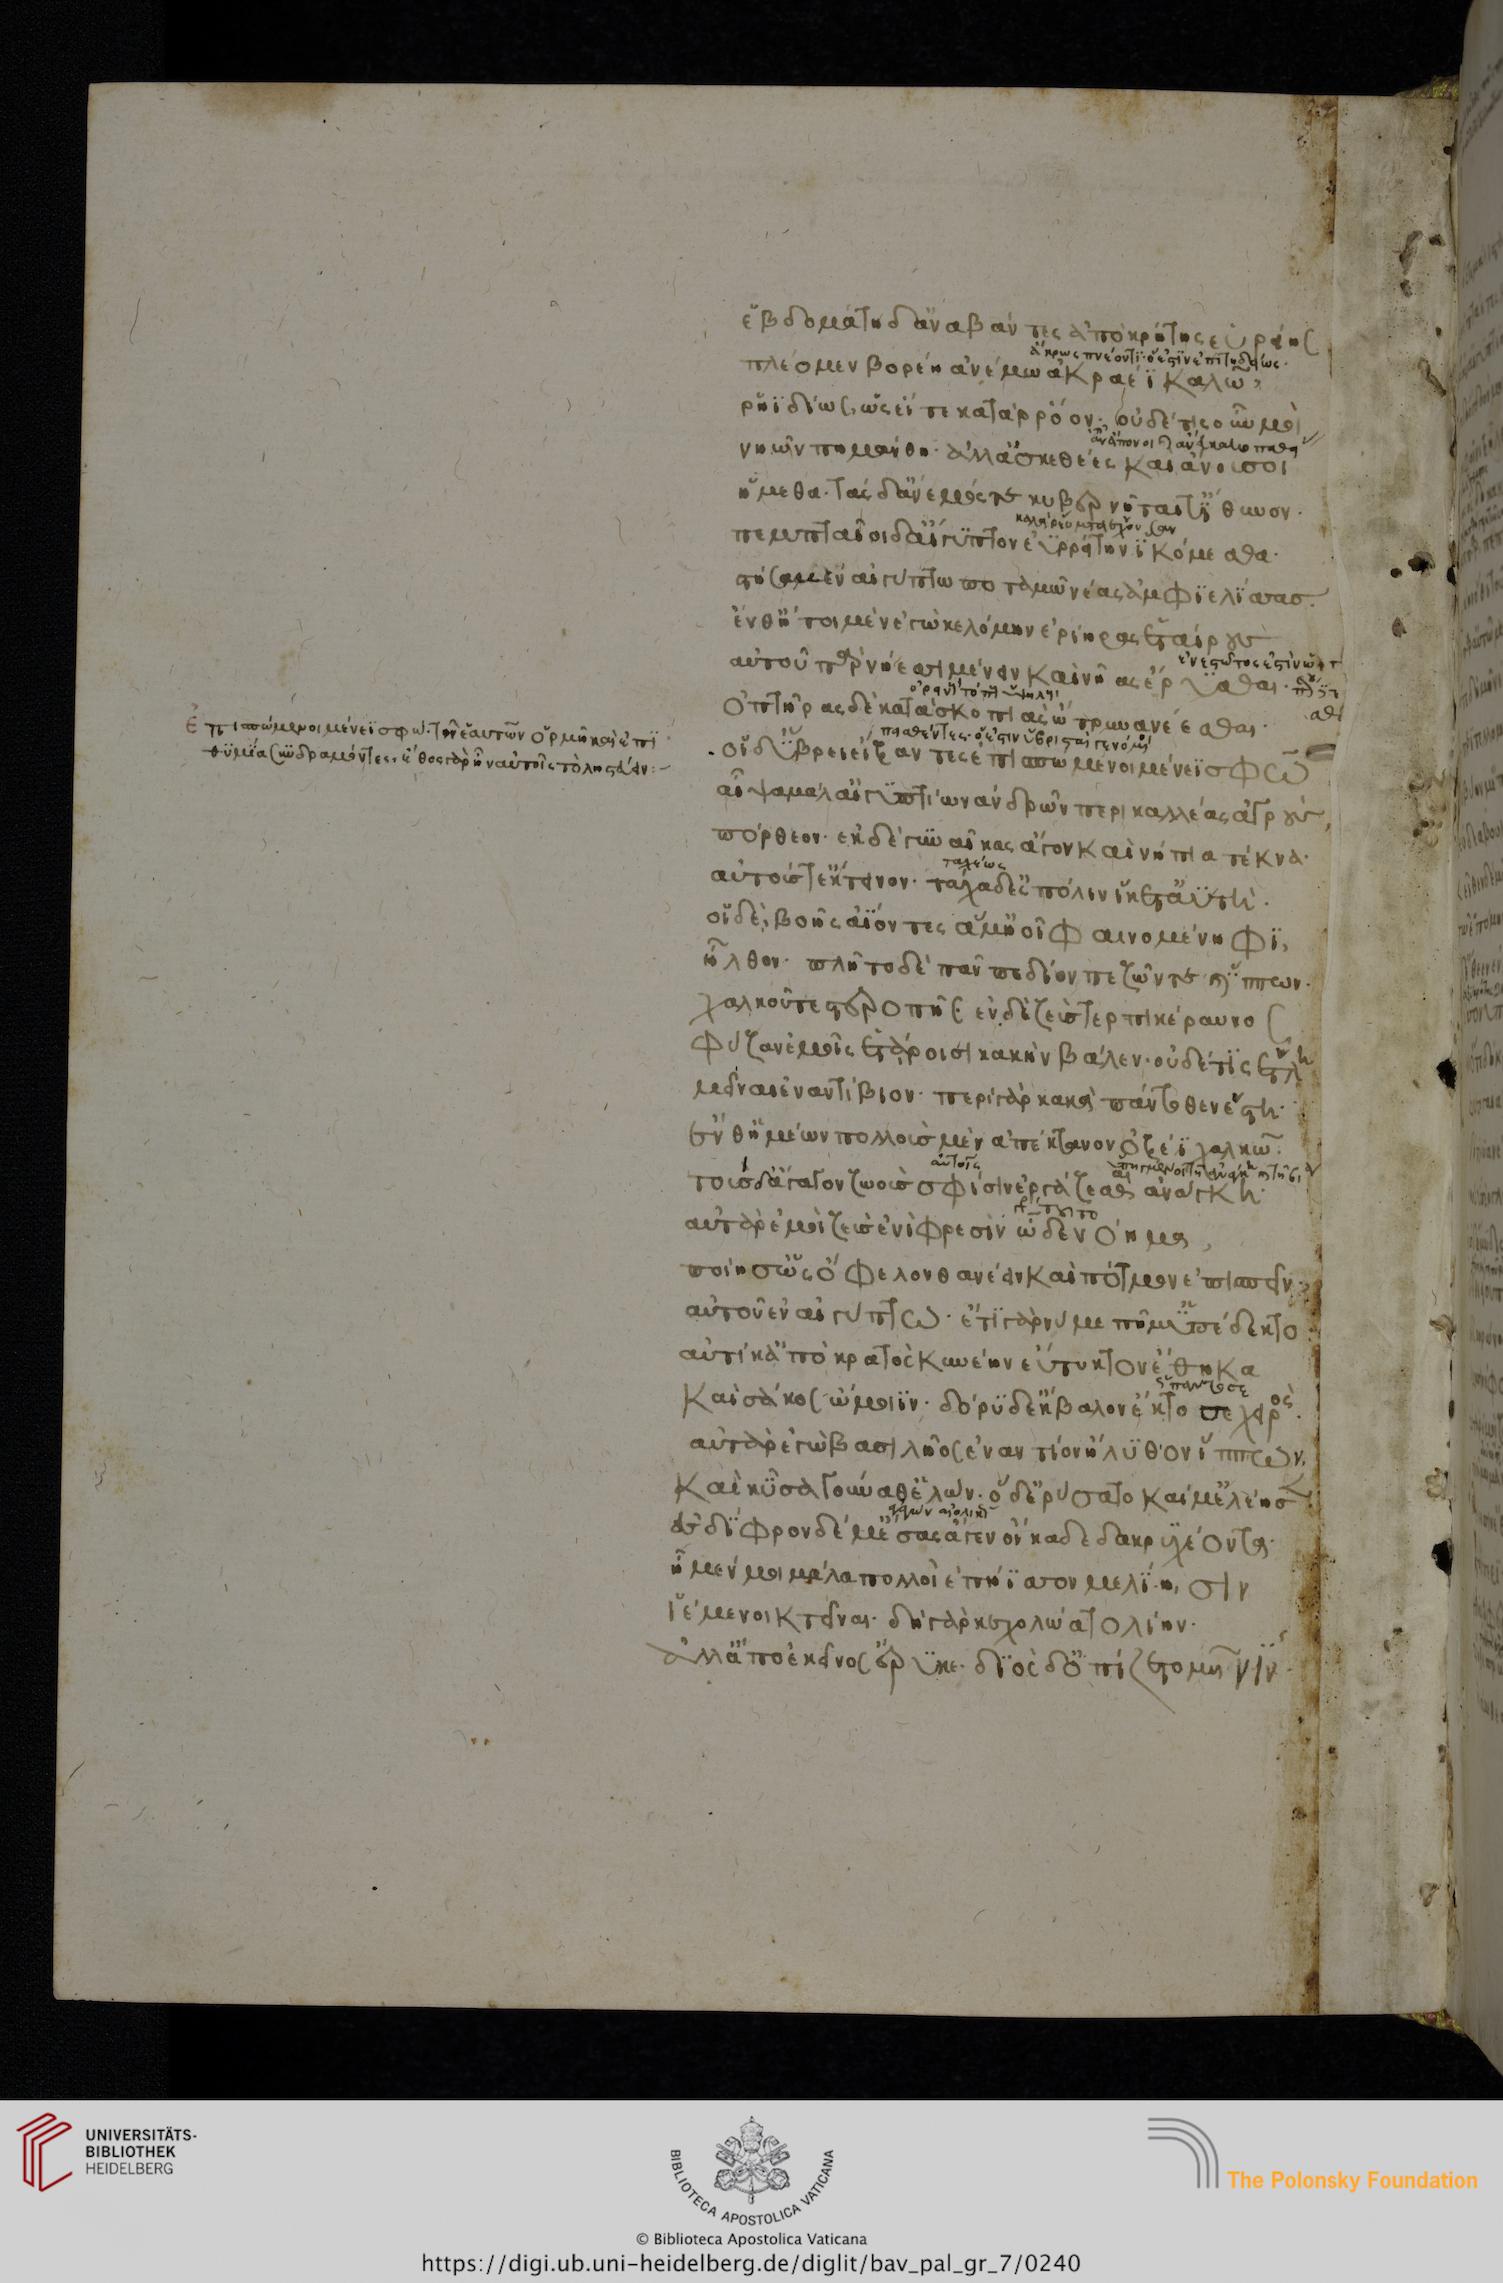 ἑβδομάτη δ᾽ ἀναβάντες ἀπὸ κρήτης εὐρείης
ἄκρως πνέοντι· ὅ ἐστιν ἐπιτηδείως·
πλέομεν βορέη ἀνέμω ἀκραέϊ καλῶ,
ρηϊδίως, ὡσεί τε κατὰ ρρόον· οὐδέ τις οὖν μοι
νηῶν πημάνθη· ἀλλ᾽ ἀσκεθέες καὶ ἄνουσοι
ἥμεθα· τὰς δ᾽ ἄνεμός τε κυβερνῆταί τ᾽ ἴθυνον·
πεμπταῖοι δ᾽ αἴγυπτον ἐϋρρείτην ἱκόμεσθα·
στήσα μὲν ἐν αἰγύπτω ποταμῶ νέας ἀμφιελίσσας·
ἔνθ᾽ ἤτοι μὲν ἐγὼ κελόμην ἐρίηρας ἑταίρους
αὐτοῦ παρ νήεσσι μένειν καὶ νῆας ἔρυσθαι·
ὀπτῆρας δὲ κατὰ σκοπιὰς ὤτρυνα νέεσθαι·
Ἐπισπώμενοι μένεϊ σφῶ· τῆ ἑαυτῶν ὁρμῆ καὶ ἐπι
θυμία συνδραμόντες·
οἱ δ᾽ ὕβρει εἴξαντες ἐπισπώμενοι μένεϊ σφῶ
αἶψα μάλ᾽ αἰγυπτίων ἀνδρῶν περικαλλέας ἀγρούς,
πόρθεον· ἐκ δὲ γυναῖκας ἄγον καὶ νήπια τέκνα·
ταχέως
αὐτούς τ᾽ ἔκτεινον· τάχα δ᾽ ἐς πόλιν ἵκετ᾽ ἀϋτή·
οἱ δὲ, βοῆς ἀΐοντες ἅμ᾽ ἠοῖ φαινομένηφι,
ἦλθον· πλῆτο δὲ πᾶν πεδίον πεζῶν τε καὶ ἵππων·
χαλκοῦ τε στεροπῆς· ἐν δὲ ζεὺς τερπικέραυνος
φύζαν ἐμοῖς ἑτάροισι κακὴν βάλεν· οὐδέ τις ἔτλη
μεῖναι ἐναντίβιον· περὶ γὰρ κακὰ πάντοθεν ἔστη·
ἔνθ᾽ ἡμέων πολλοὺς μὲν ἀπέκτανον ὀξέϊ χαλκῶ·
αὐτοῖς
τοὺς δ᾽ ἄγαγον ζωούς σφίσιν ἐργάζεσθαι ἀνάγκη·
αὐτὰρ ἐμοὶ ζεὺς ἐνὶ φρεσὶν ὧδε νόημα,
ποίησ᾽ ὡς ὄφελον θανέειν καὶ πότμον ἐπισπεῖν,
αὐτοῦ ἐν αἰγύπτω· ἔτι γάρ νύ με πῆμ᾽ ὑπέδεκτο
αὐτίκ᾽ ἀπὸ κρατὸς κυνέην εὔτυκτον ἔθηκα
καὶ σάκος ὤμοιϊν· δόρυ δ᾽ ἔκβαλον ἔκτοσε χειρός·
αὐτὰρ ἐγὼ βασιλῆος ἐναντίον ἤλυθον ἵππων,
καὶ κύσα γούναθ᾽ ἑλών· ὁ δ᾽ ἐρύσατο καί μ᾽ ἐλέησεν
ἐς δίφρον δέ μ᾽ ἕσας ἄγεν οἴκαδε δακρυχέοντα·
ἦ μέν μοι μάλα πολλοὶ ἐπήϊσσον μελίησιν
ἱέμενοι κτεῖναι· δὴ γὰρ κεχολώατο λίην·
ἀλλ᾽ ἀπὸ κεῖνος ἔρυκε· διὸς δ᾽ ὀπίζετο μῆνιν
UNIVERSITÄTS-
BIBLIOTHEK
HEIDELBERG
BIBLIOTECA APOSTOLICA VATICANA
The Polonsky Foundation
© Biblioteca Apostolica Vaticana
https://digi.ub.uni-heidelberg.de/diglit/bav_pal_gr_7/0240